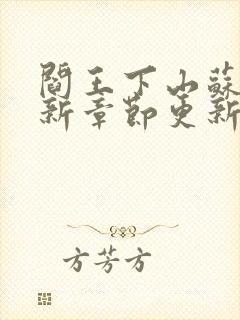 閻王下山蘇
新章節更新
方芳方